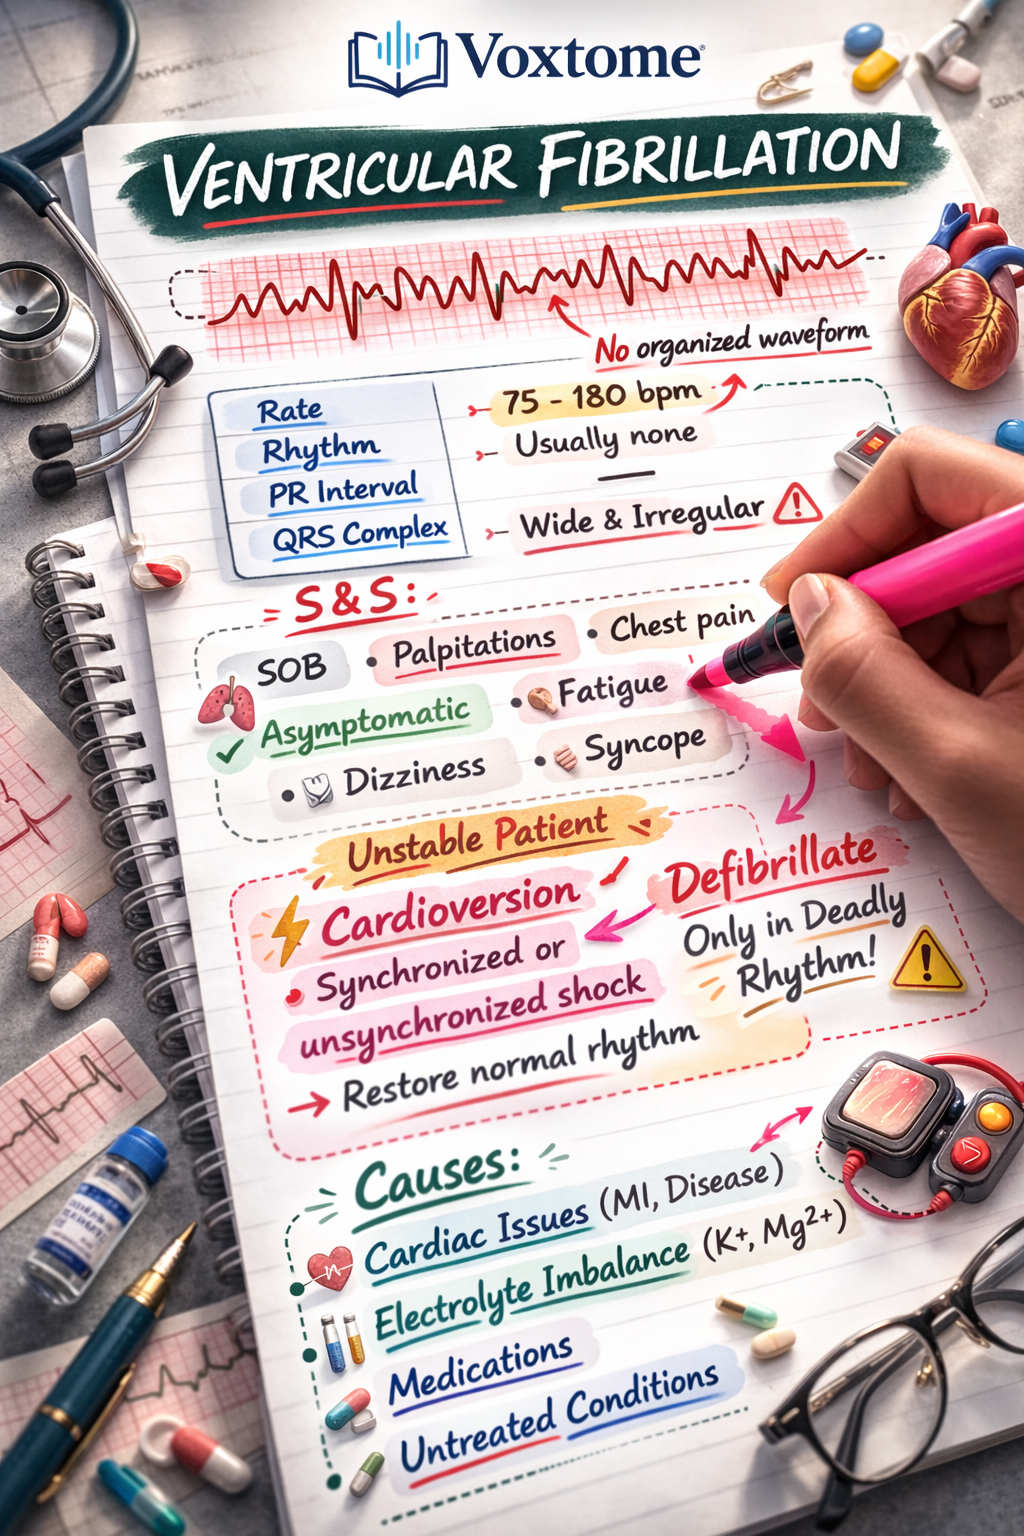 Voxtome
VENTRICULAR FIBRILLATION
No organized waveform
Rate
75 - 180 bpm
Rhythm
Usually none
PR Interval
—
QRS Complex
Wide & Irregular
S & S:
SOB
• Palpitations
• Chest pain
Asymptomatic
• Fatigue
• Dizziness
• Syncope
Unstable Patient
Cardioversion
Synchronized or
unsynchronized shock
→ Restore normal rhythm
Defibrillate
Only in Deadly
Rhythm!
Causes:
Cardiac Issues (MI, Disease)
Electrolyte Imbalance (K⁺, Mg²⁺)
Medications
Untreated Conditions